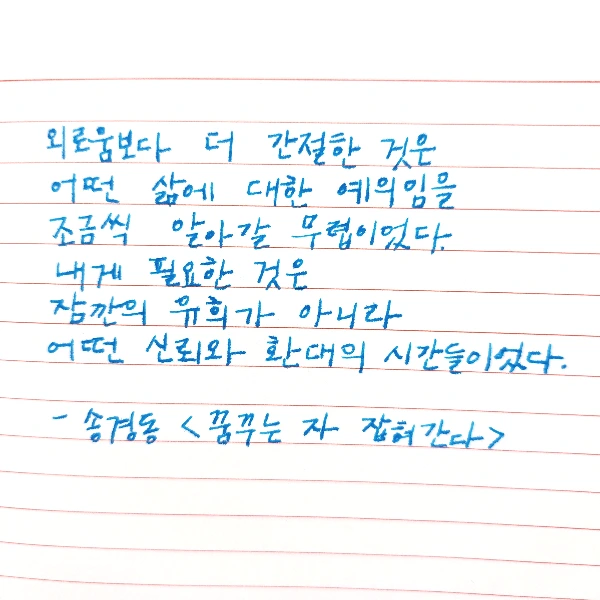 외로움보다 더 간절한 것은
어떤 삶에 대한 예의임을
조금씩 알아갈 무렵이었다.
내게 필요한 것은
잠깐의 유희가 아니라
어떤 신뢰와 환대의 시간들이었다.
- 송경동 <꿈꾸는 자 잡혀간다>